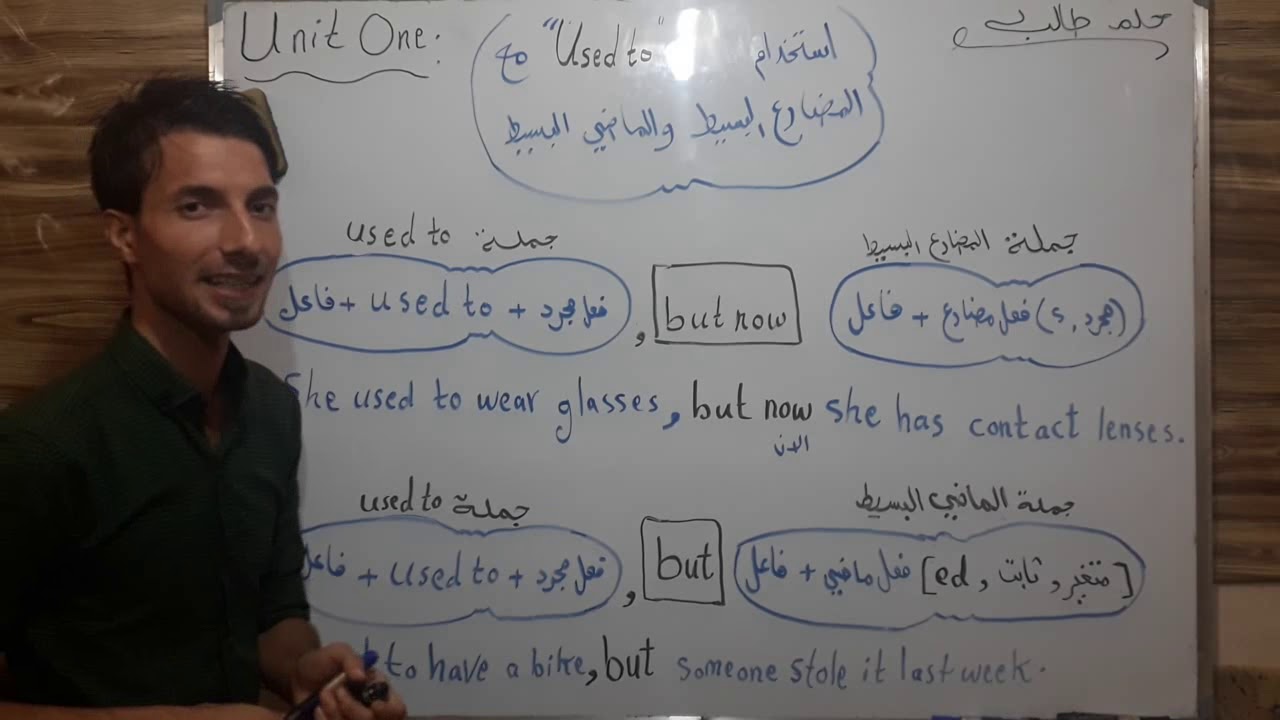 Unit One:
حلم طالب
استخدام "Used to" مع
المضارع البسيط والماضي البسيط
جملة used to
جملة المضارع البسيط
فاعل + used to + فعل مجرد , but now فاعل + فعل مضارع (s , مجرد)
She used to wear glasses, but now she has contact lenses.
الان
جملة used to
جملة الماضي البسيط
فاعل + used to + فعل مجرد , but فاعل + فعل ماضي [ed , ثابت , متغير]
to have a bike, but someone stole it last week.